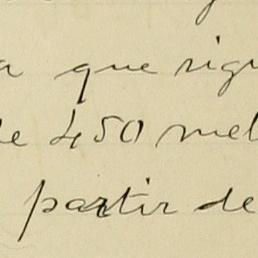 a que sigu
de 450 met
partir de